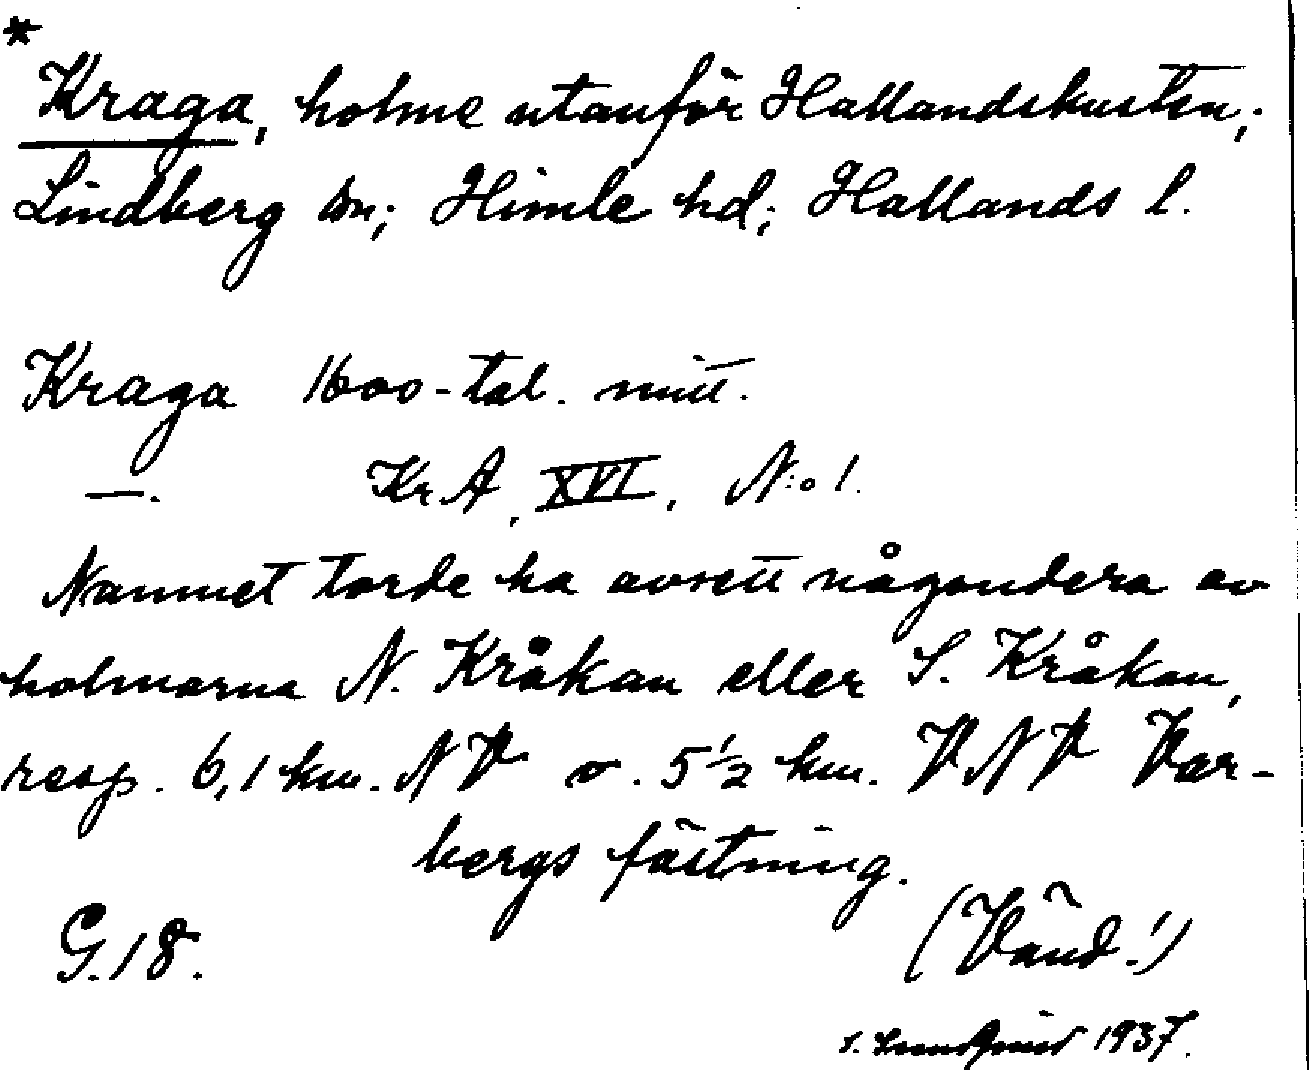 *
Kraga, holme utanför Hallandskusten,;
Lindberg sn; Himle hd; Hallands l.
Kraga 1600-tal. mitt.
—. Kr. A, XVI, N:o 1.
Namnet torde ha avsett någondera av
holmarna N. Kråkan eller S. Kråkan,
resp. 6,1 km. NV o. 5 1/2 km. VNV Var-
bergs fästning.
G. 18. (Vänd!)
S. 1937.